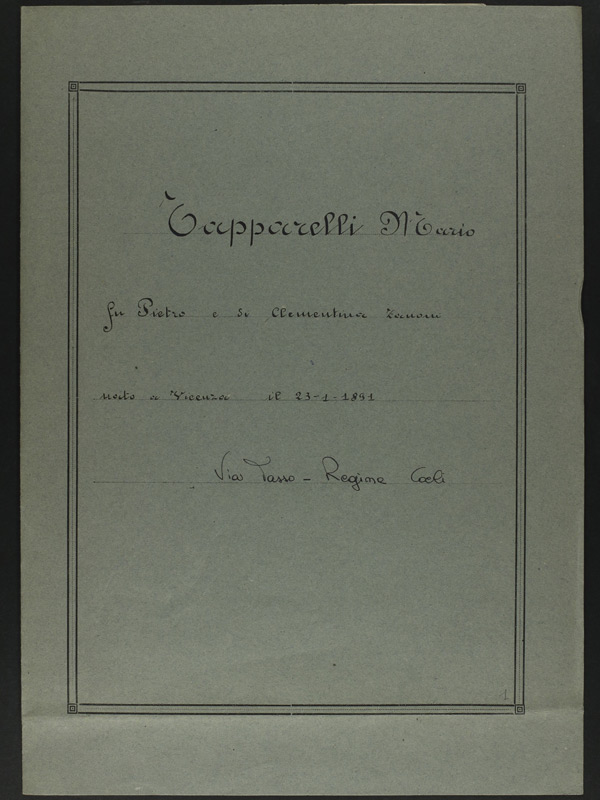 Tapparelli Mario
fu Pietro e di Clementina Zanoni
nato a Vicenza il 23-1-1891
Via Tasso - Regina Coeli
1